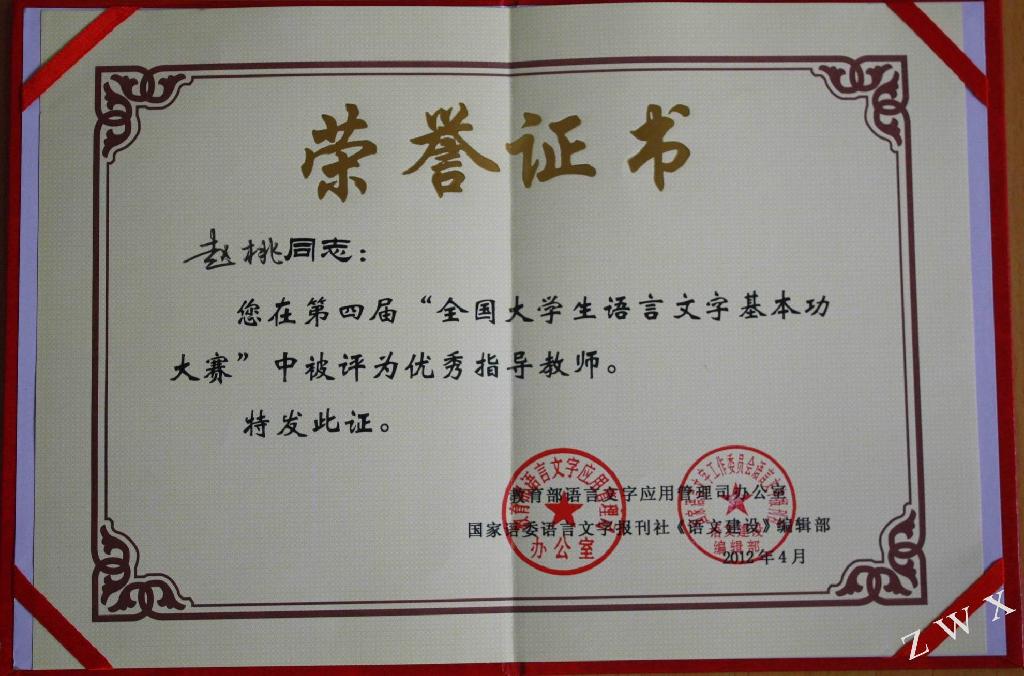 荣誉证书
赵桃同志：
您在第四届“全国大学生语言文字基本功
大赛”中被评为优秀指导教师。
特发此证。
教育部语言文字应用管理司办公室
国家语委语言文字报刊社《语文建设》编辑部
2012年4月
办公室
编辑部
ZWX